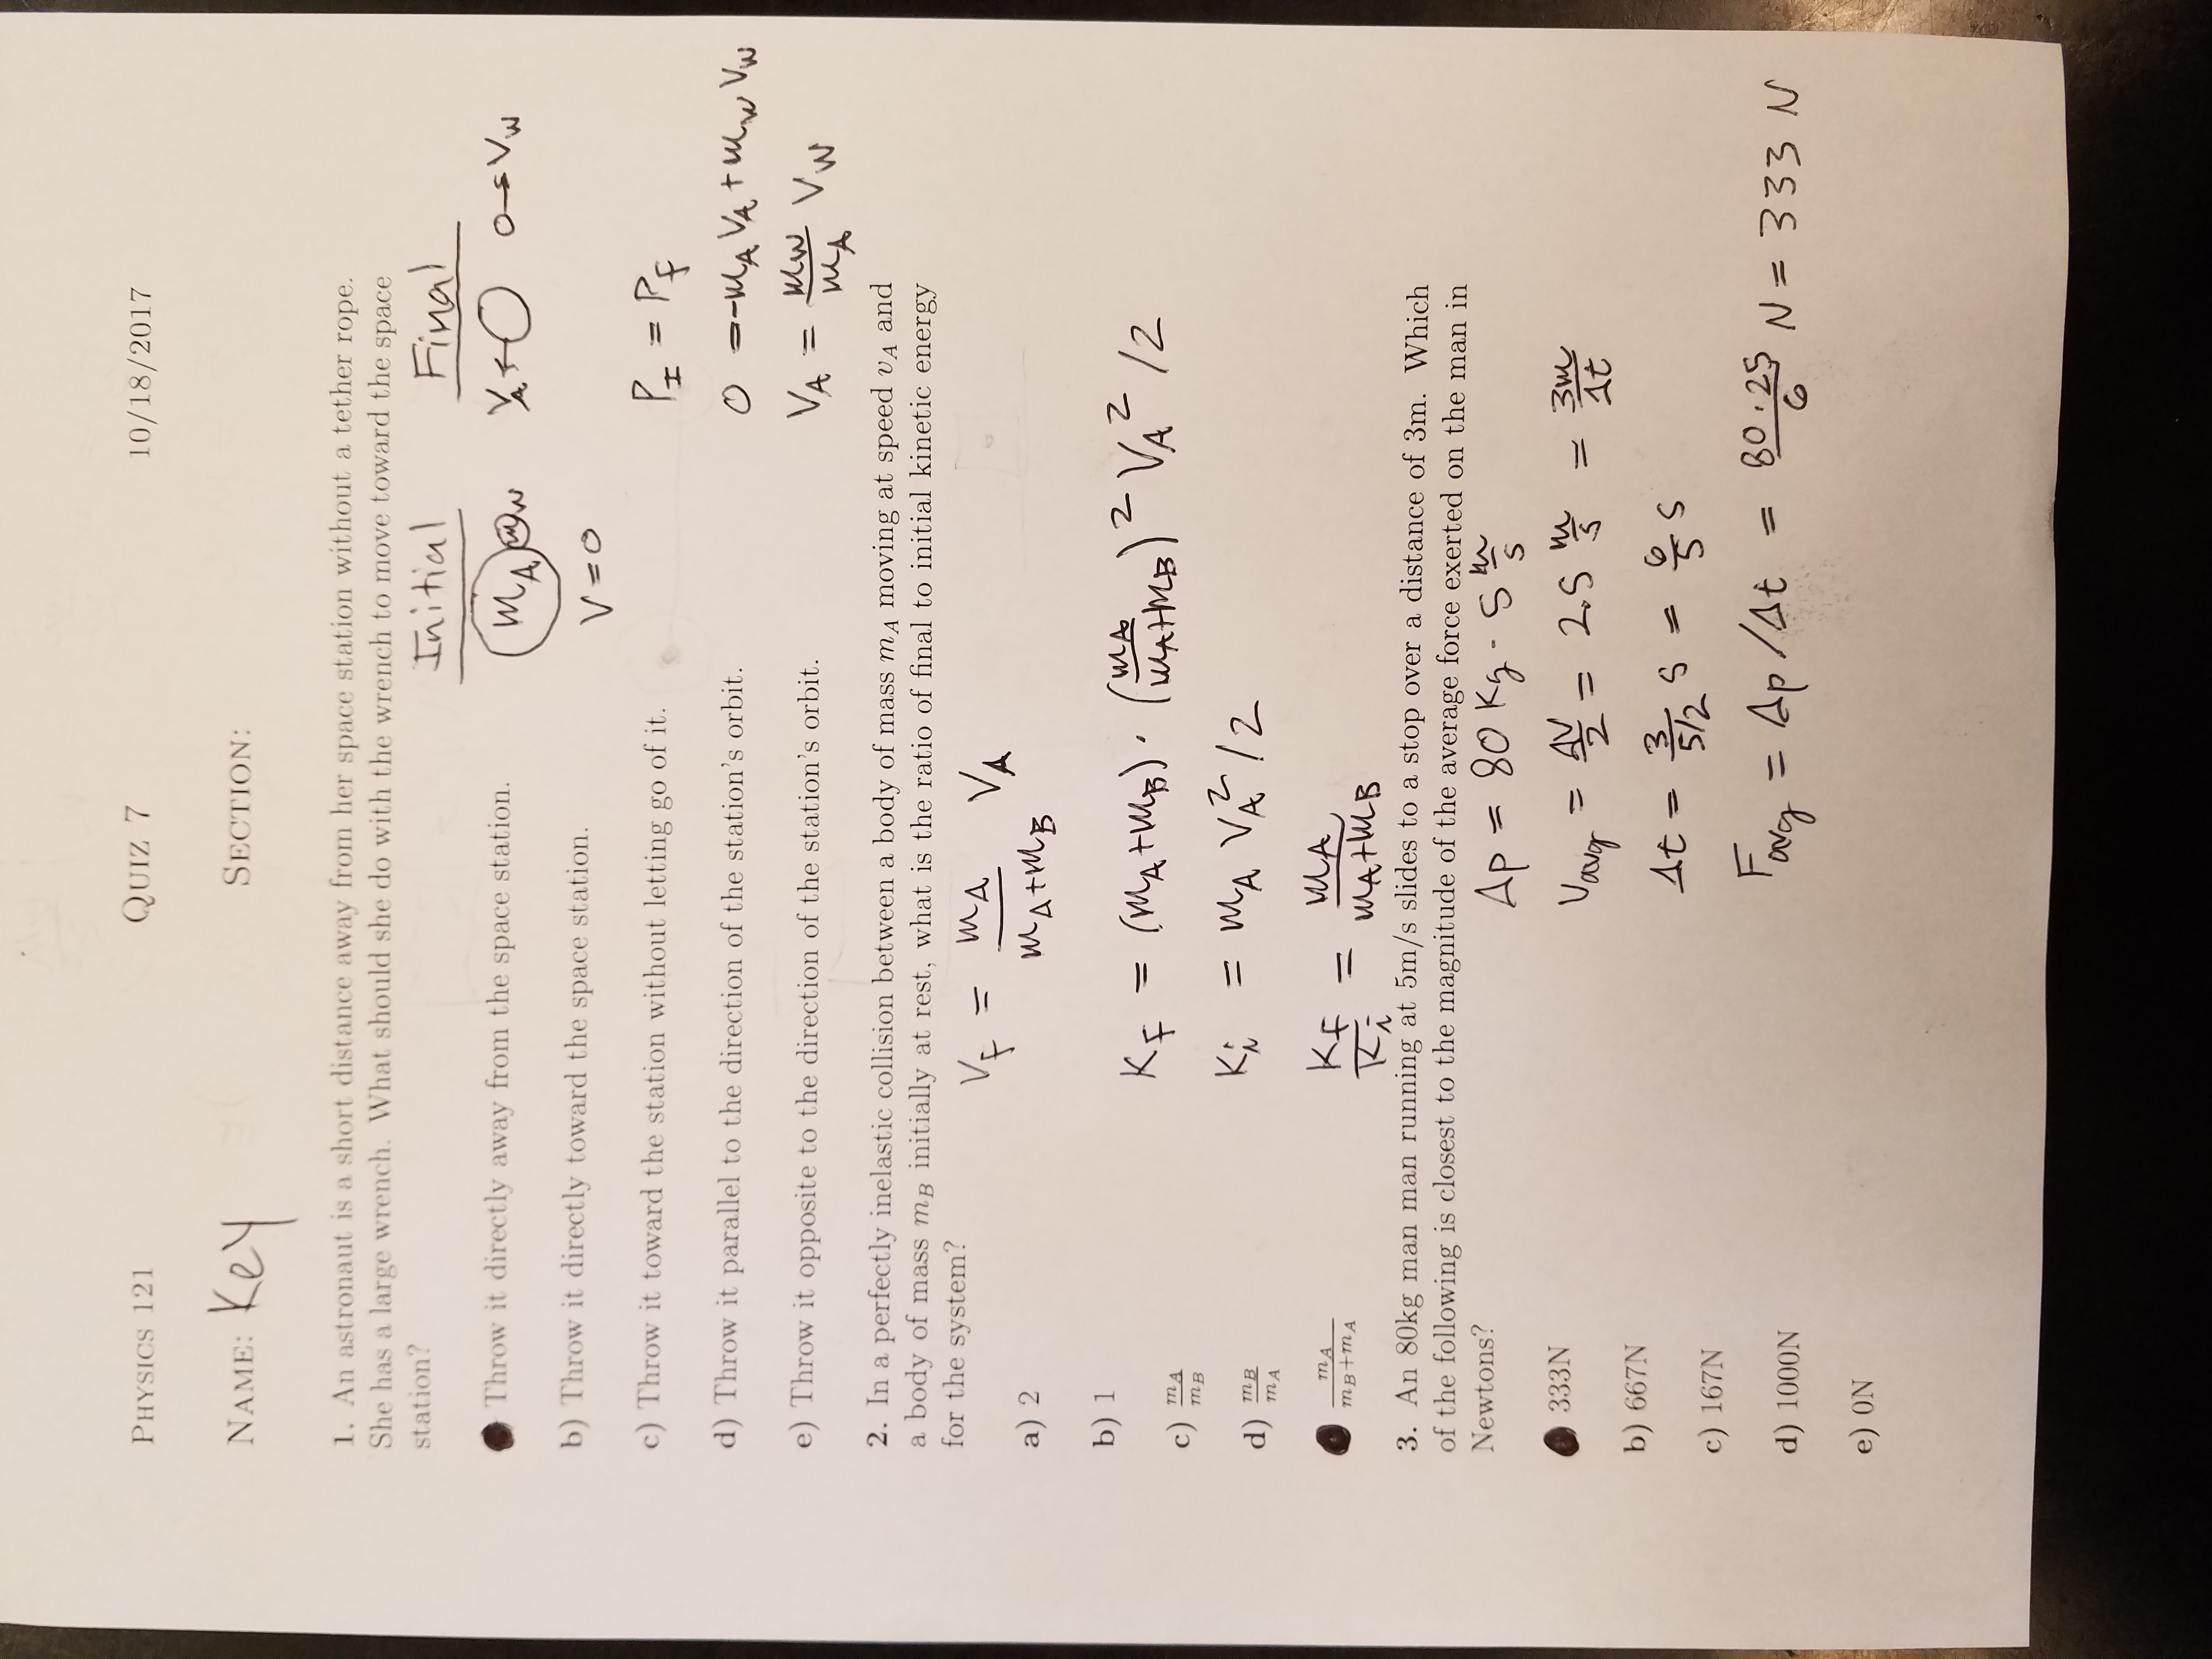 PHYSICS 121 QUIZ 7 10/18/2017
NAME: Key SECTION:
1. An astronaut is a short distance away from her space station without a tether rope.
She has a large wrench. What should she do with the wrench to move toward the space
station?
Initial Final
Throw it directly away from the space station.
m_A m_w V_A ← → V_w
b) Throw it directly toward the space station.
V = 0
c) Throw it toward the station without letting go of it.
P_I = P_f
d) Throw it parallel to the direction of the station's orbit.
0 = -m_A V_A + m_w V_w
e) Throw it opposite to the direction of the station's orbit.
V_A = m_w/m_A V_w
2. In a perfectly inelastic collision between a body of mass m_A moving at speed v_A and
a body of mass m_B initially at rest, what is the ratio of final to initial kinetic energy
for the system?
V_f = m_A/(m_A+m_B) V_A
a) 2
b) 1
K_f = (m_A+m_B) · (m_A/(m_A+m_B))² V_A² /2
c) m_A/m_B
K_i = m_A V_A² /2
d) m_B/m_A
m_A/(m_B+m_A)
K_f/K_i = m_A/(m_A+m_B)
3. An 80kg man man running at 5m/s slides to a stop over a distance of 3m. Which
of the following is closest to the magnitude of the average force exerted on the man in
Newtons?
Δp = 80 Kg · 5 m/s
333N
V_avg = ΔV/2 = 2.5 m/s = 3m/Δt
b) 667N
Δt = 3/(5/2) s = 6/5 s
c) 167N
F_avg = Δp/Δt = 80·25/6 N = 333 N
d) 1000N
e) 0N